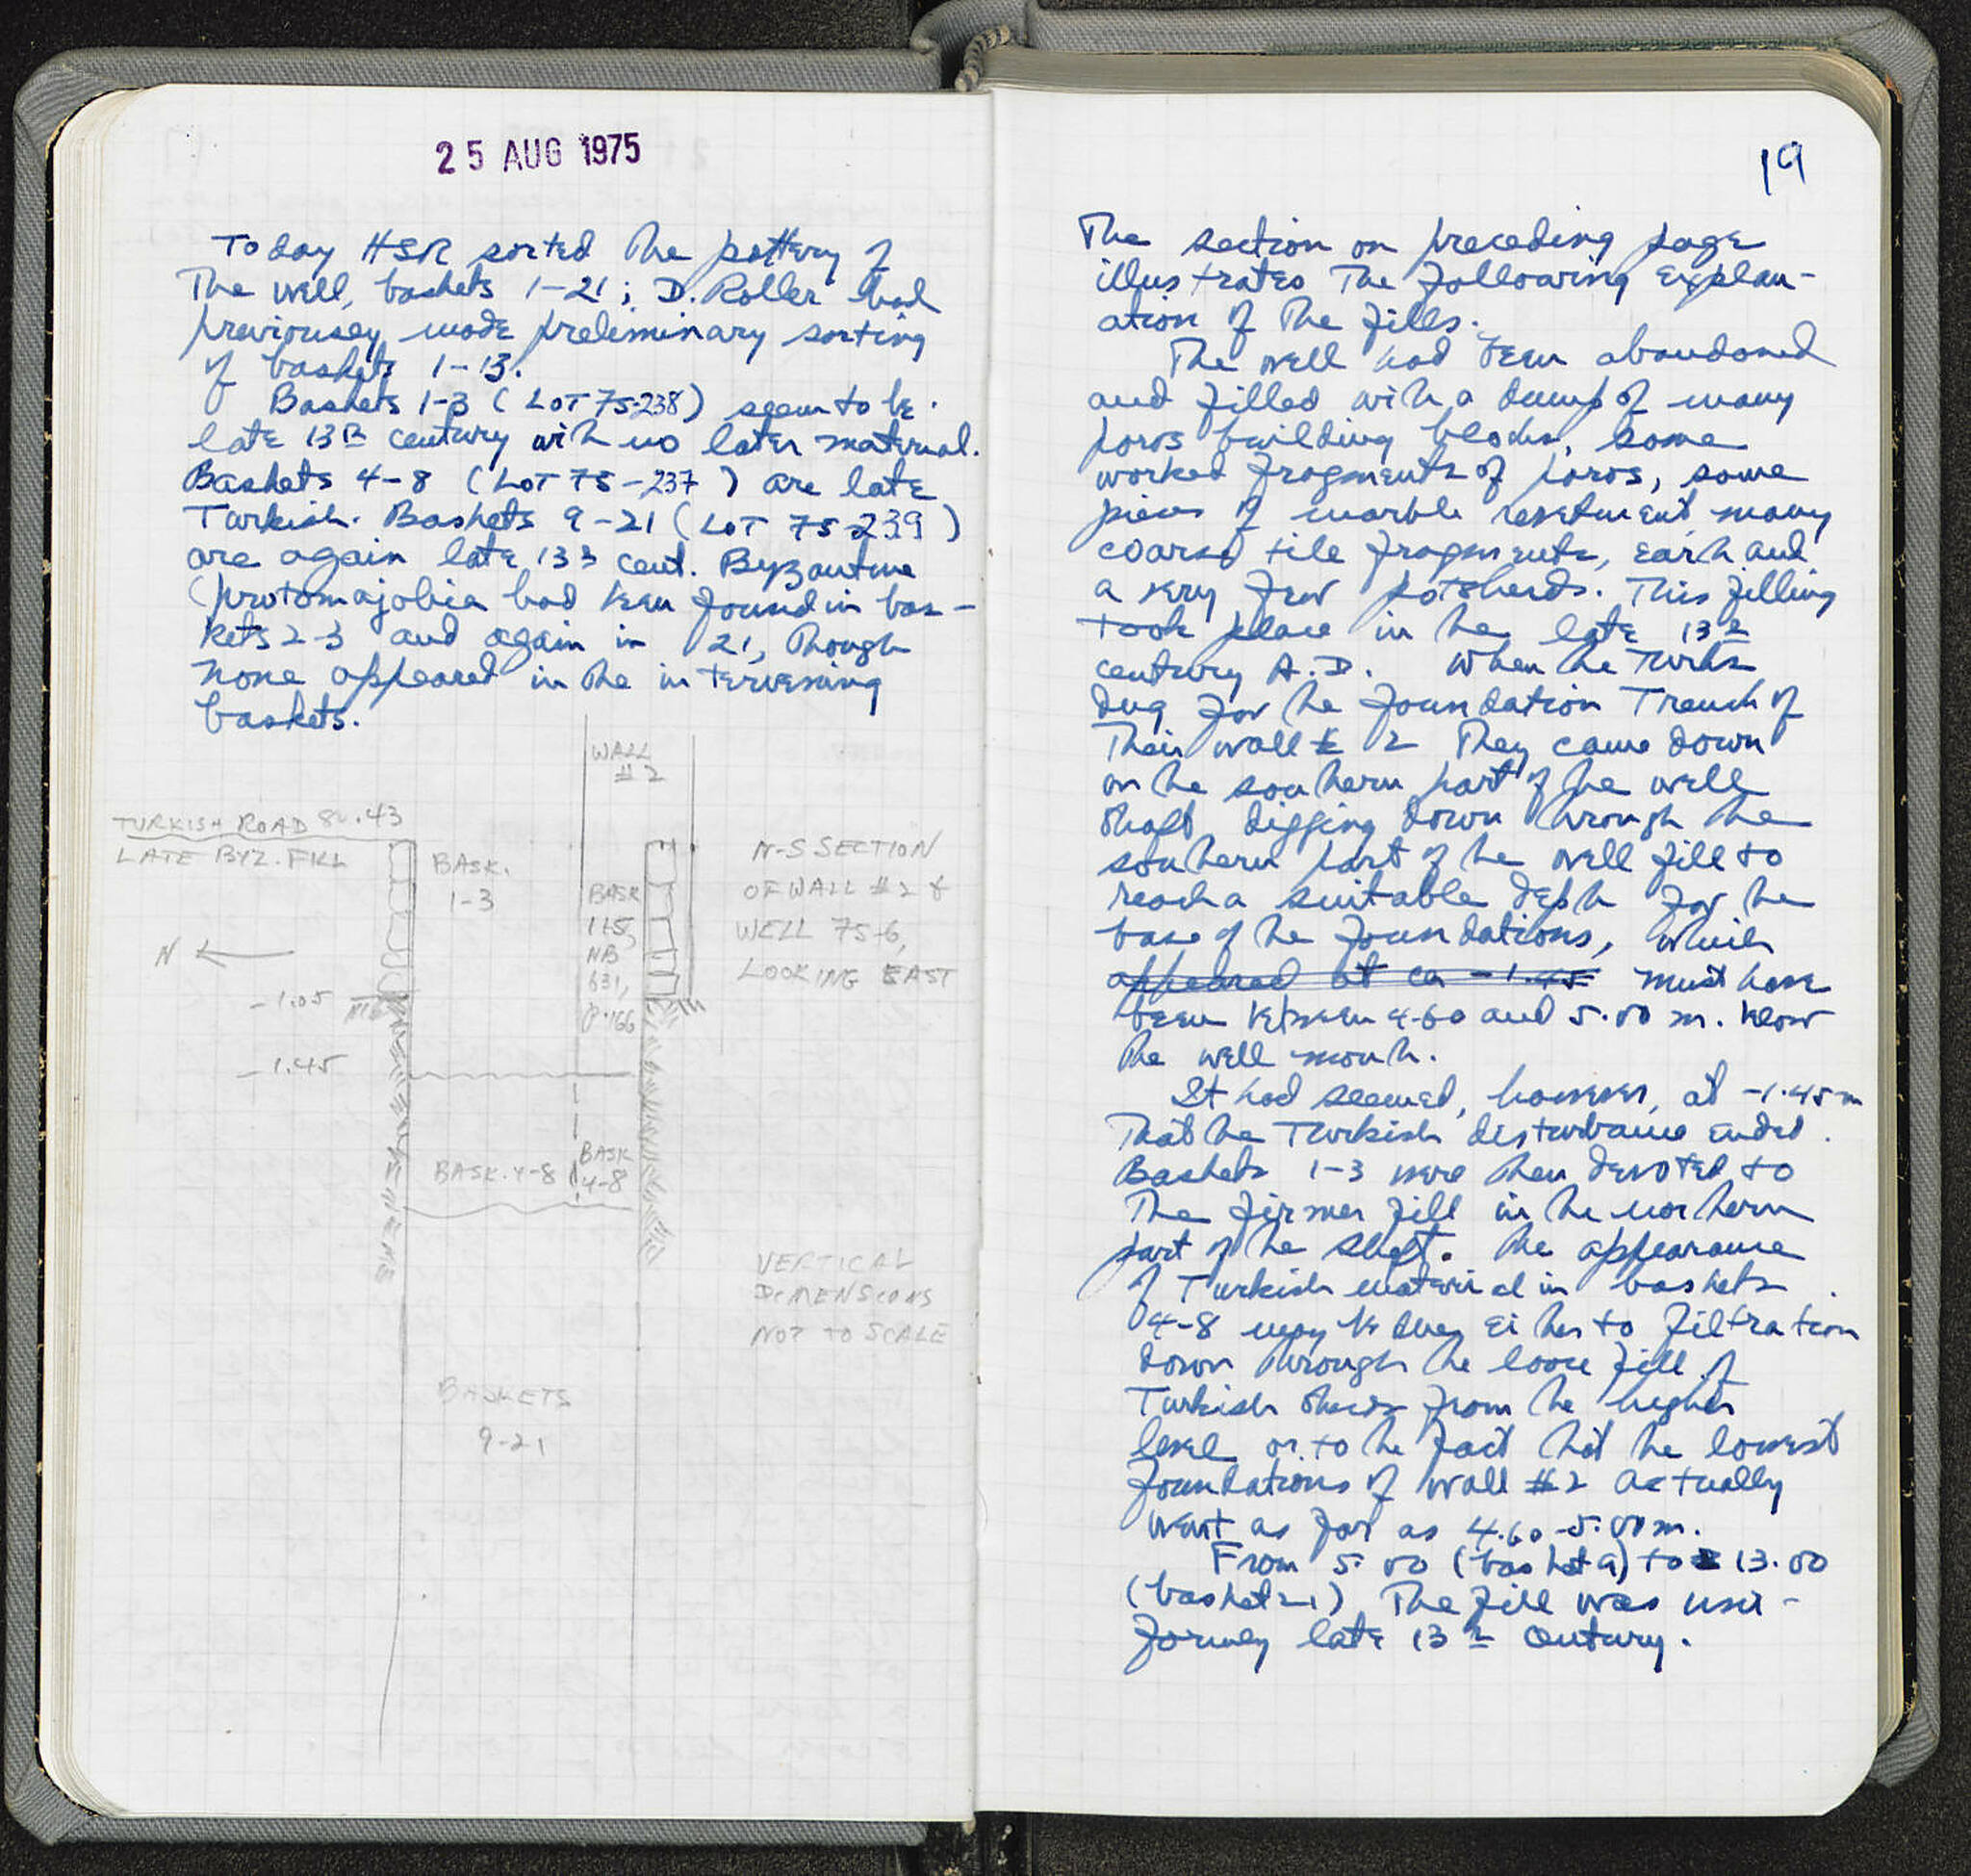 25 AUG 1975
Today HSR sorted the pottery of
The well, baskets 1-21; D. Roller had
previously made preliminary sorting
of baskets 1-13.
Baskets 1-3 (LOT 75-238) seem to be
late 13th century with no later material.
Baskets 4-8 (LOT 75-237) are late
Turkish. Baskets 9-21 (LOT 75-239)
are again late 13th cent. Byzantine
(protomajolica had been found in bas-
kets 2-3 and again in 21, though
none appeared in the intervening
baskets.
WALL
#2
TURKISH ROAD 8 .43
LATE BYZ. FILL
BASK.
1-3
BASK
1+5,
NB
631,
P.166
N-S SECTION
OF WALL #2 &
WELL 75-6,
LOOKING EAST
N
-1.05
-1.45
BASK. 4-8
BASK
4-8
VERTICAL
DIMENSIONS
NOT TO SCALE
BASKETS
9-21
19
The section on preceding page
illustrates The following explan-
ation of The fills.
The well had been abandoned
and filled with a dump of many
poros building blocks, some
worked fragments of poros, some
pieces of marble revetment, many
coarse tile fragments, earth and
a very few potsherds. This filling
took place in the late 13th
century A.D. When the Turks
dug for the foundation Trench of
Their wall # 2 They came down
on the southern part of the well
shaft, digging down through the
southern part of the well fill to
reach a suitable depth for the
base of the foundations, which
appeared at ca -1.45 must have
been between 4.60 and 5.00 m. below
the well mouth.
It had seemed, however, at -1.45 m
That the Turkish disturbance ended.
Baskets 1-3 were then devoted to
The firmer fill in the northern
part of the shaft. The appearance
of Turkish material in baskets
4-8 may be due either to filtration
down through the loose fill of
Turkish sherds from the higher
level or to the fact that the lowest
foundations of wall #2 actually
went as far as 4.60-5.00 m.
From 5.00 (basket 9) to 13.00
(basket 21) The fill was uni-
formly late 13th century.